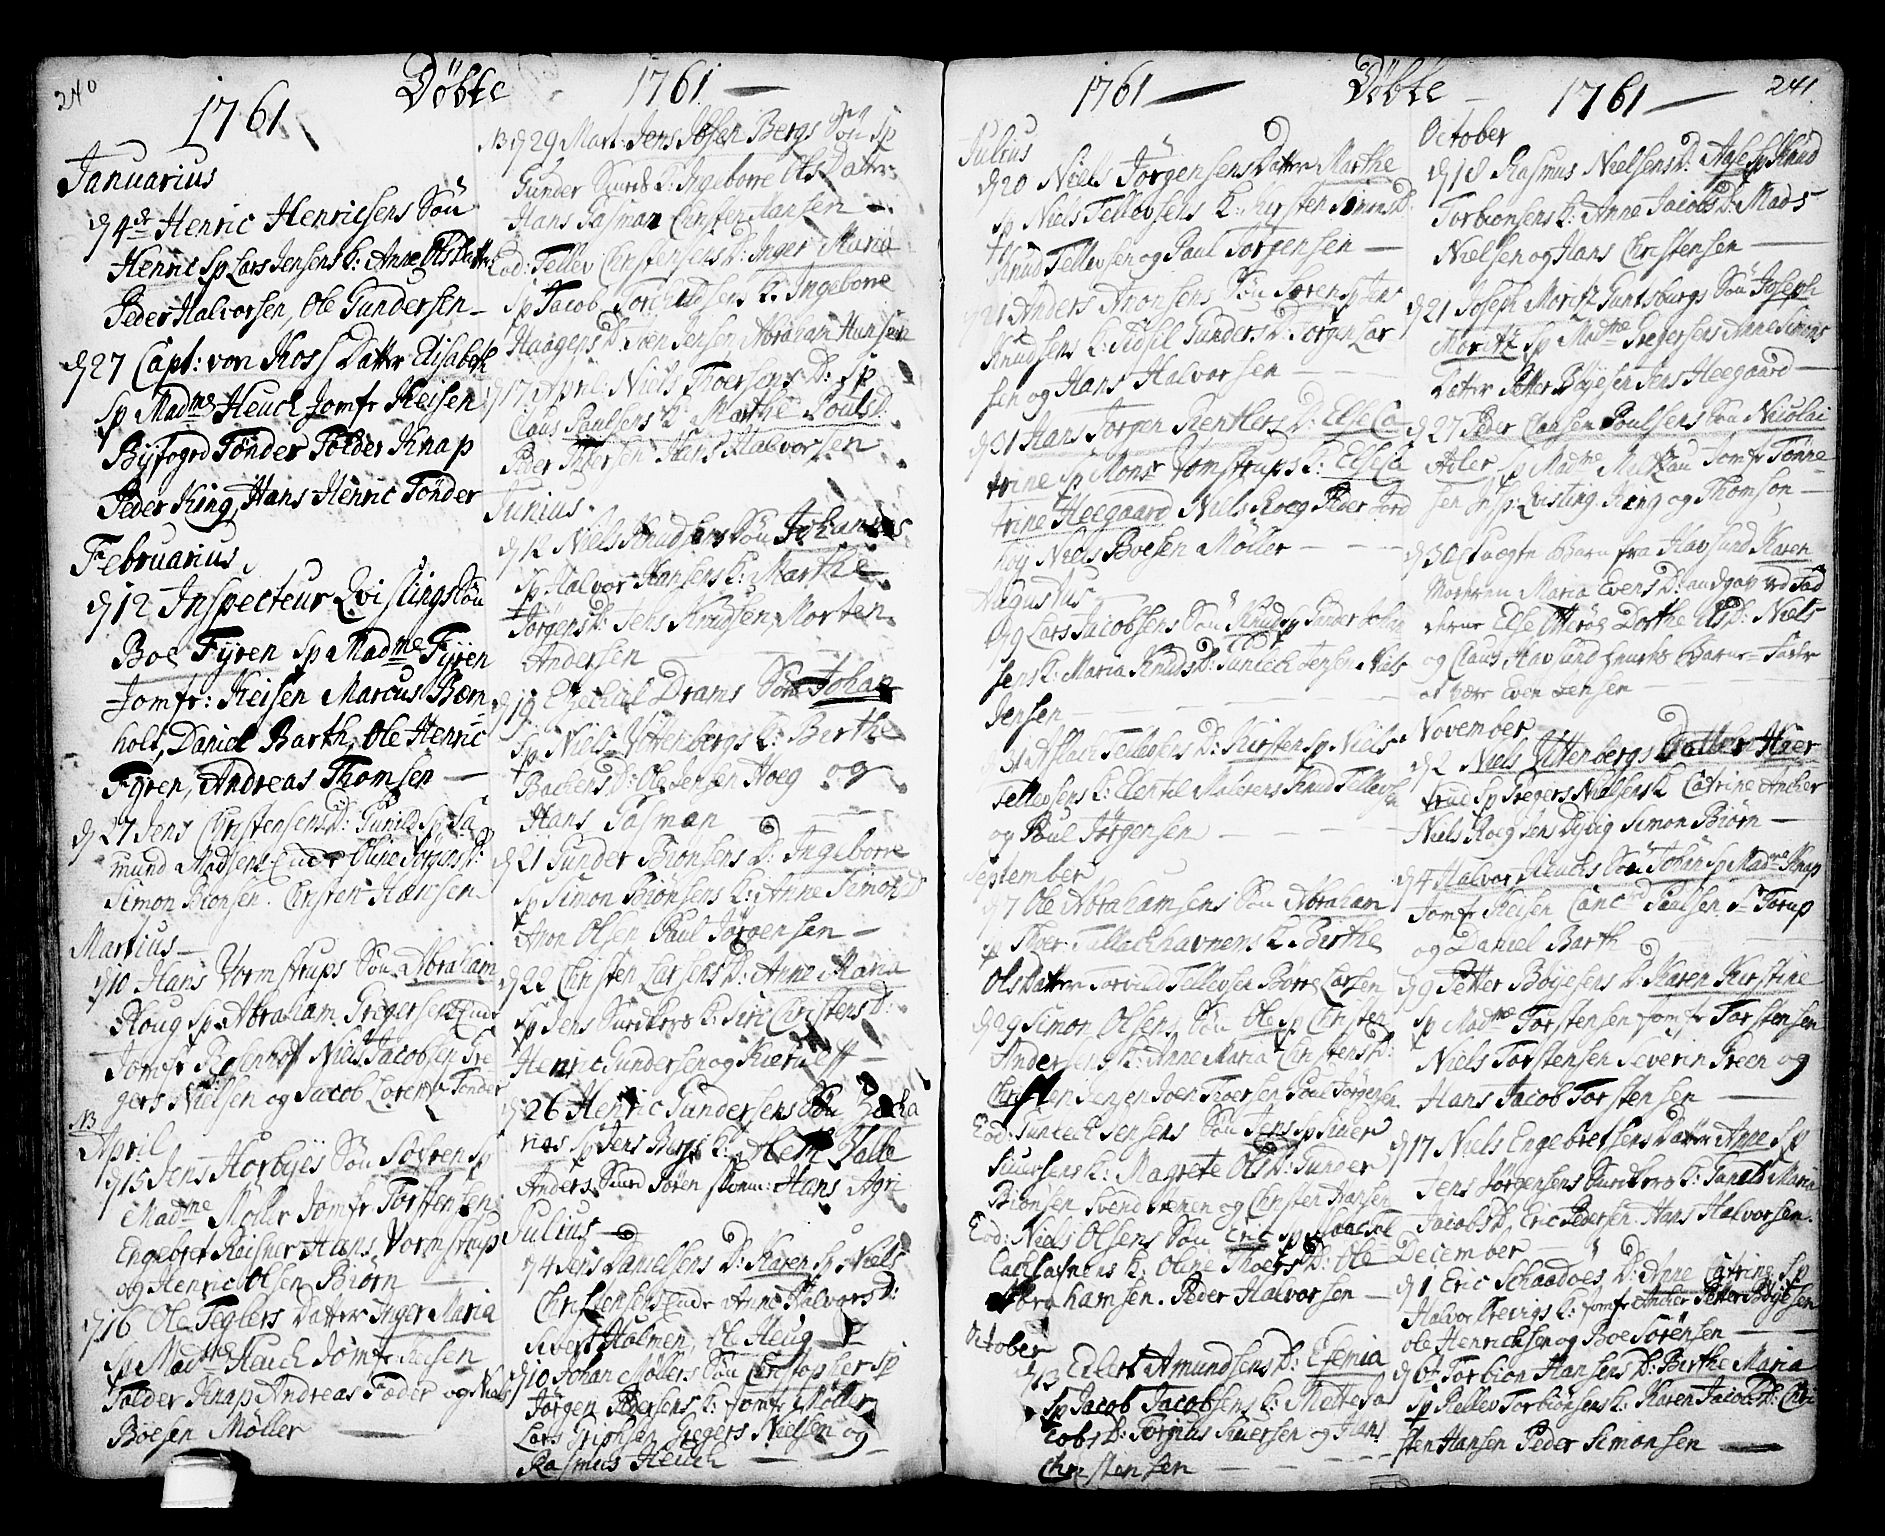 240
Döbte
1761
Januarius
d 4de Henric Henricsens Sön
Henric Sp Lars Jensens K: Anne Ols Datter
Peder Halvorsen, Ole Gundersen
d 27 Capt: von Koss Datter Elisabeth
Sp Madme Heuch Jomfr Keisen
Byfogd Tønder Polder Knap
Peder King, Hans Henric Tönder
Februarius
d 12 Inspecteur Qvislings Sön
Boe Fyren Sp Madme Fyren
Jomfr: Keisen Marcus Bœrn
holt, Daniel Barth, Ole Henric
Fyren, Andreas Thomsen
d 27 Jens Christensens D: Gunild Sp Sa
mund Madsens Enke Oline Jörgens D:
Simon Bionsen. Christen Hansen
Martius
d 10 Hans Vormstrups Sön Abraham
Ploug Sp Abraham Gregersens Enke
Jomfr Niels Jacobsen Gre
gers Nielsen og Jacob Lorentz Tonder
NB
April
d 15 Jens Horbyes Sön Sövren Sp
Madme Möller Jomfr Torstensen
Engebret Reisner Hans Vormstrup
og Henric Olsen Biörn
d 16 Ole Teglers Datter Inger Maria
Sp Madme Heuch Jomfr Keisen
Polder Knap Andreas Fœder og Niels
Boesen Möller
1761
NB d 29 Mart: Jens Ibsen Bergs Sön Sp
Gunder K: Ingeborre Ols Datter
Hans Gasman Christen Hansen
Eod: Tellev Christensens D: Inger Maria
Sp Jacob K: Ingeborre
Haagens D: Joen Jensen Abraham Hansen
d 17 April: Niels Thoersens D: Sp
Claus Paulsens K: Marthe Pouls D:
Peder Hans Halvorsen
Junius
d 12 Niels Knudsens Sön Johannes
Sp Halvor Hansens K: Marthe
Jörgens D: Jens Knudsen, Morten
Andersen
d 19 Ezechiel Drams Sön Johan
Sp Niels Yttenbergs K: Berthe
Backens D: Ole Jensen Hoeg og
Hans Gasman
d 21 Gunder Bionsens D: Ingeborre
Sp Simon Biönsens K: Anne Simons D
Aron Olsen Paul Jörgensen
d 22 Christen Larsens D: Anne Maria
Sp Jens K: Siri Christens D:
Henric Gundersen og
d 26 Henric Gundersens Sön Zacha
rias Sp Jens K:
Anders Sören Hans
Julius
d 4 Jens Danielsens D: Karen Sp Niels
Christensens Enke Anne Halvors D:
Sivert Holmen, Ole Heug
d 10 Johan Möllers Sön Christopher Sp
Jörgen Pedersens K: Jomfr Möller
Lars Gregers Nielsen og
Rasmus Heuch
1761
Döbte
241
Julius
d 20 Niels Jörgensens Datter Marthe
Sp Niels Tellevsens K: Kirsten Simens D:
Knud Tellevsen og Paul Jorgensen
d 21 Anders Aronsens Sön Sören Sp Jens
Knudsens K: Sidsel Gunders D: Jorgen Lar
sen og Hans Halvorsen
d 31 Hans Jorgen Kentlers D: Else Ca
trine Sp Monsr Vomstrups K: Else Ca
trine Heegaard Niels Roeg Peder Jord
höy Niels Boesen Möller
Augustus
d 9 Lars Jacobsens Sön Knud Sp Gunder Johan
sens K: Maria Knuds D: Tentch Jensen Niels
Jensen
d 31 Aslach Tellevsens D: Kirsten Sp Niels
Tellevsens K: Knud Tellevsen
og Poul Jörgensen
September
d 7 Ole Abrahamsens Sön Abraham
Sp Thoer Tallachhavnens K: Berthe
Ols Datter Torvild Tellevsen Börre Larsen
d 29 Simon Olsens Sön Ole Sp Christen
Andersens K: Anne Maria Christens D:
Christen Jensen Joen Thoersen Poul Jörgensen
Eod: Jensens Sön Jens Sp Siver
Siversens K: Magrete Ols D: Gunder
Bionsen Svend og Christen Hansen
Eod: Niels Olsens Sön Eric Sp
K: Oline Thoers D: Ole
Abrahamsen. Peder Halvorsen
October
d 13 Edlert Amundsens D: Efemia
Sp Jacob Jacobsens K: Mette Ja
cobs D: Torgius Siversen og Hans
Christensen
1761
October
d 18 Rasmus Nielsens D: Aase Sp Knud
Torbionsens K: Anne Jacobs D: Mads
Nielsen og Hans Christensen
d 21 Joseph Moritz Guntsburgs Sön Joseph
Moritz Sp Madme Gregersens Anne Simons
Datter Petter Böyesen Jens Heegaard
d 27 Peder Clausen Poulsens Sön Nicolai
Adler Sp Madme Jomfr Tönne-
sen Insp: Qvisling King og Thomson
d 30 et uægte Barn fra Havsund Karen
Moderen Maria Evens D: angav ved Fad
derne Else Otterös Dorthe Els D: Niels
og Claus Havsund Barne-Fader
at være Even Jensen
November
d 2 Niels Yttenbergs Datter Haer
trud Sp Gregers Nielsens K Catrine Ancher
Niels Roeg Jens Simon Biörn
d 4 Halvor Heuchs Sön Johan Sp Madme Knap
Jomfr Keisen Cancrd Paulsen Sr Torup
og Daniel Barth
d 9 Petter Böyesens D: Karen Kirstine
Sp Madme Torstensen Jomfr Torstensen
Niels Torstensen Severin Green og
Hans Jacob Torstensen
d 17 Niels Engebretsens Datter Anne Sp
Jens Jörgensens K: Maria
Jacobs D, Eric Pedersen. Hans Halvorsen.
December
d 1 Eric Schaadoes D: Anne Catrine Sp
Halvor Brevigs K: Jomfr Ancher Petter Böyesen
Ole Henrichsen og Boe Sörensen
d 6 Torbion Hansens D: Berthe Maria
Sp Rellev Torbionsens K: Karen Jacobs D: Chri
sten Hansen Peder Simonsen